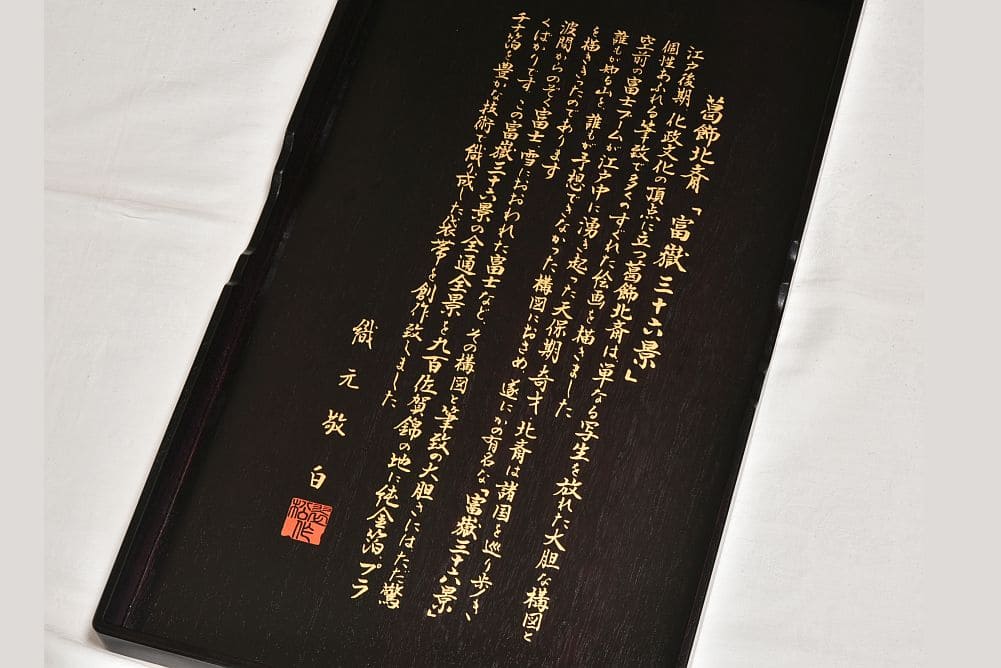 葛飾北斎「富嶽三十六景」
江戸後期 化政文化の頂点に立つ葛飾北斎は単なる写生を放れた大胆な構図と
個性あふれる筆致で多くのすぐれた絵画を描きました
空前の富士ブームが江戸中に湧き起った天保期 奇才・北斎は諸国を巡り歩き
誰もが知る山を、誰もが予想できなかった構図におさめ、遂にかの有名な「富嶽三十六景」
を描ききったのであります
波間からのぞく富士 雪におおわれた富士など、その構図と筆致の大胆さにはただ驚
くばかりです この富嶽三十六景の全通全景を九百佐賀錦の地に純金箔、プラ
チナ箔を豊かな技術で織り成した袋帯を創作致しました
織元敬白